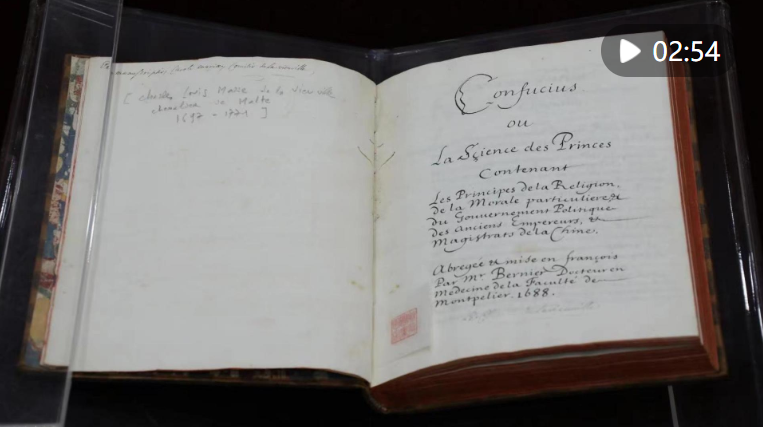 Charles Louis Marie de la Vieuville
de Malte
Confucius
ou
La Science des Princes
Contenant
Les Principes de la Religion,
de la Morale particuliere &
du Gouvernement Politique
des anciens Empereurs, &
Magistrats de la Chine.
Abregée & mise en françois
Par Mr Bernier Docteur en
Medecine de la Faculté de
Montpelier. 1688.
02:54